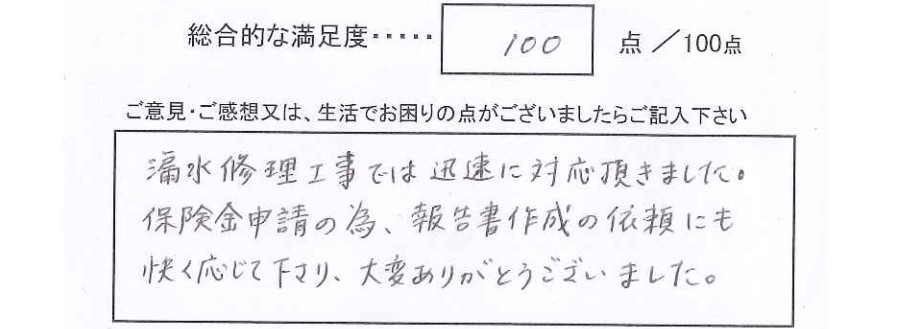 総合的な満足度・・・・・ 100 点 ／100点
ご意見・ご感想又は、生活でお困りの点がございましたらご記入下さい
漏水修理工事では迅速に対応頂きました。
保険金申請の為、報告書作成の依頼にも
快く応じて下さり、大変ありがとうございました。